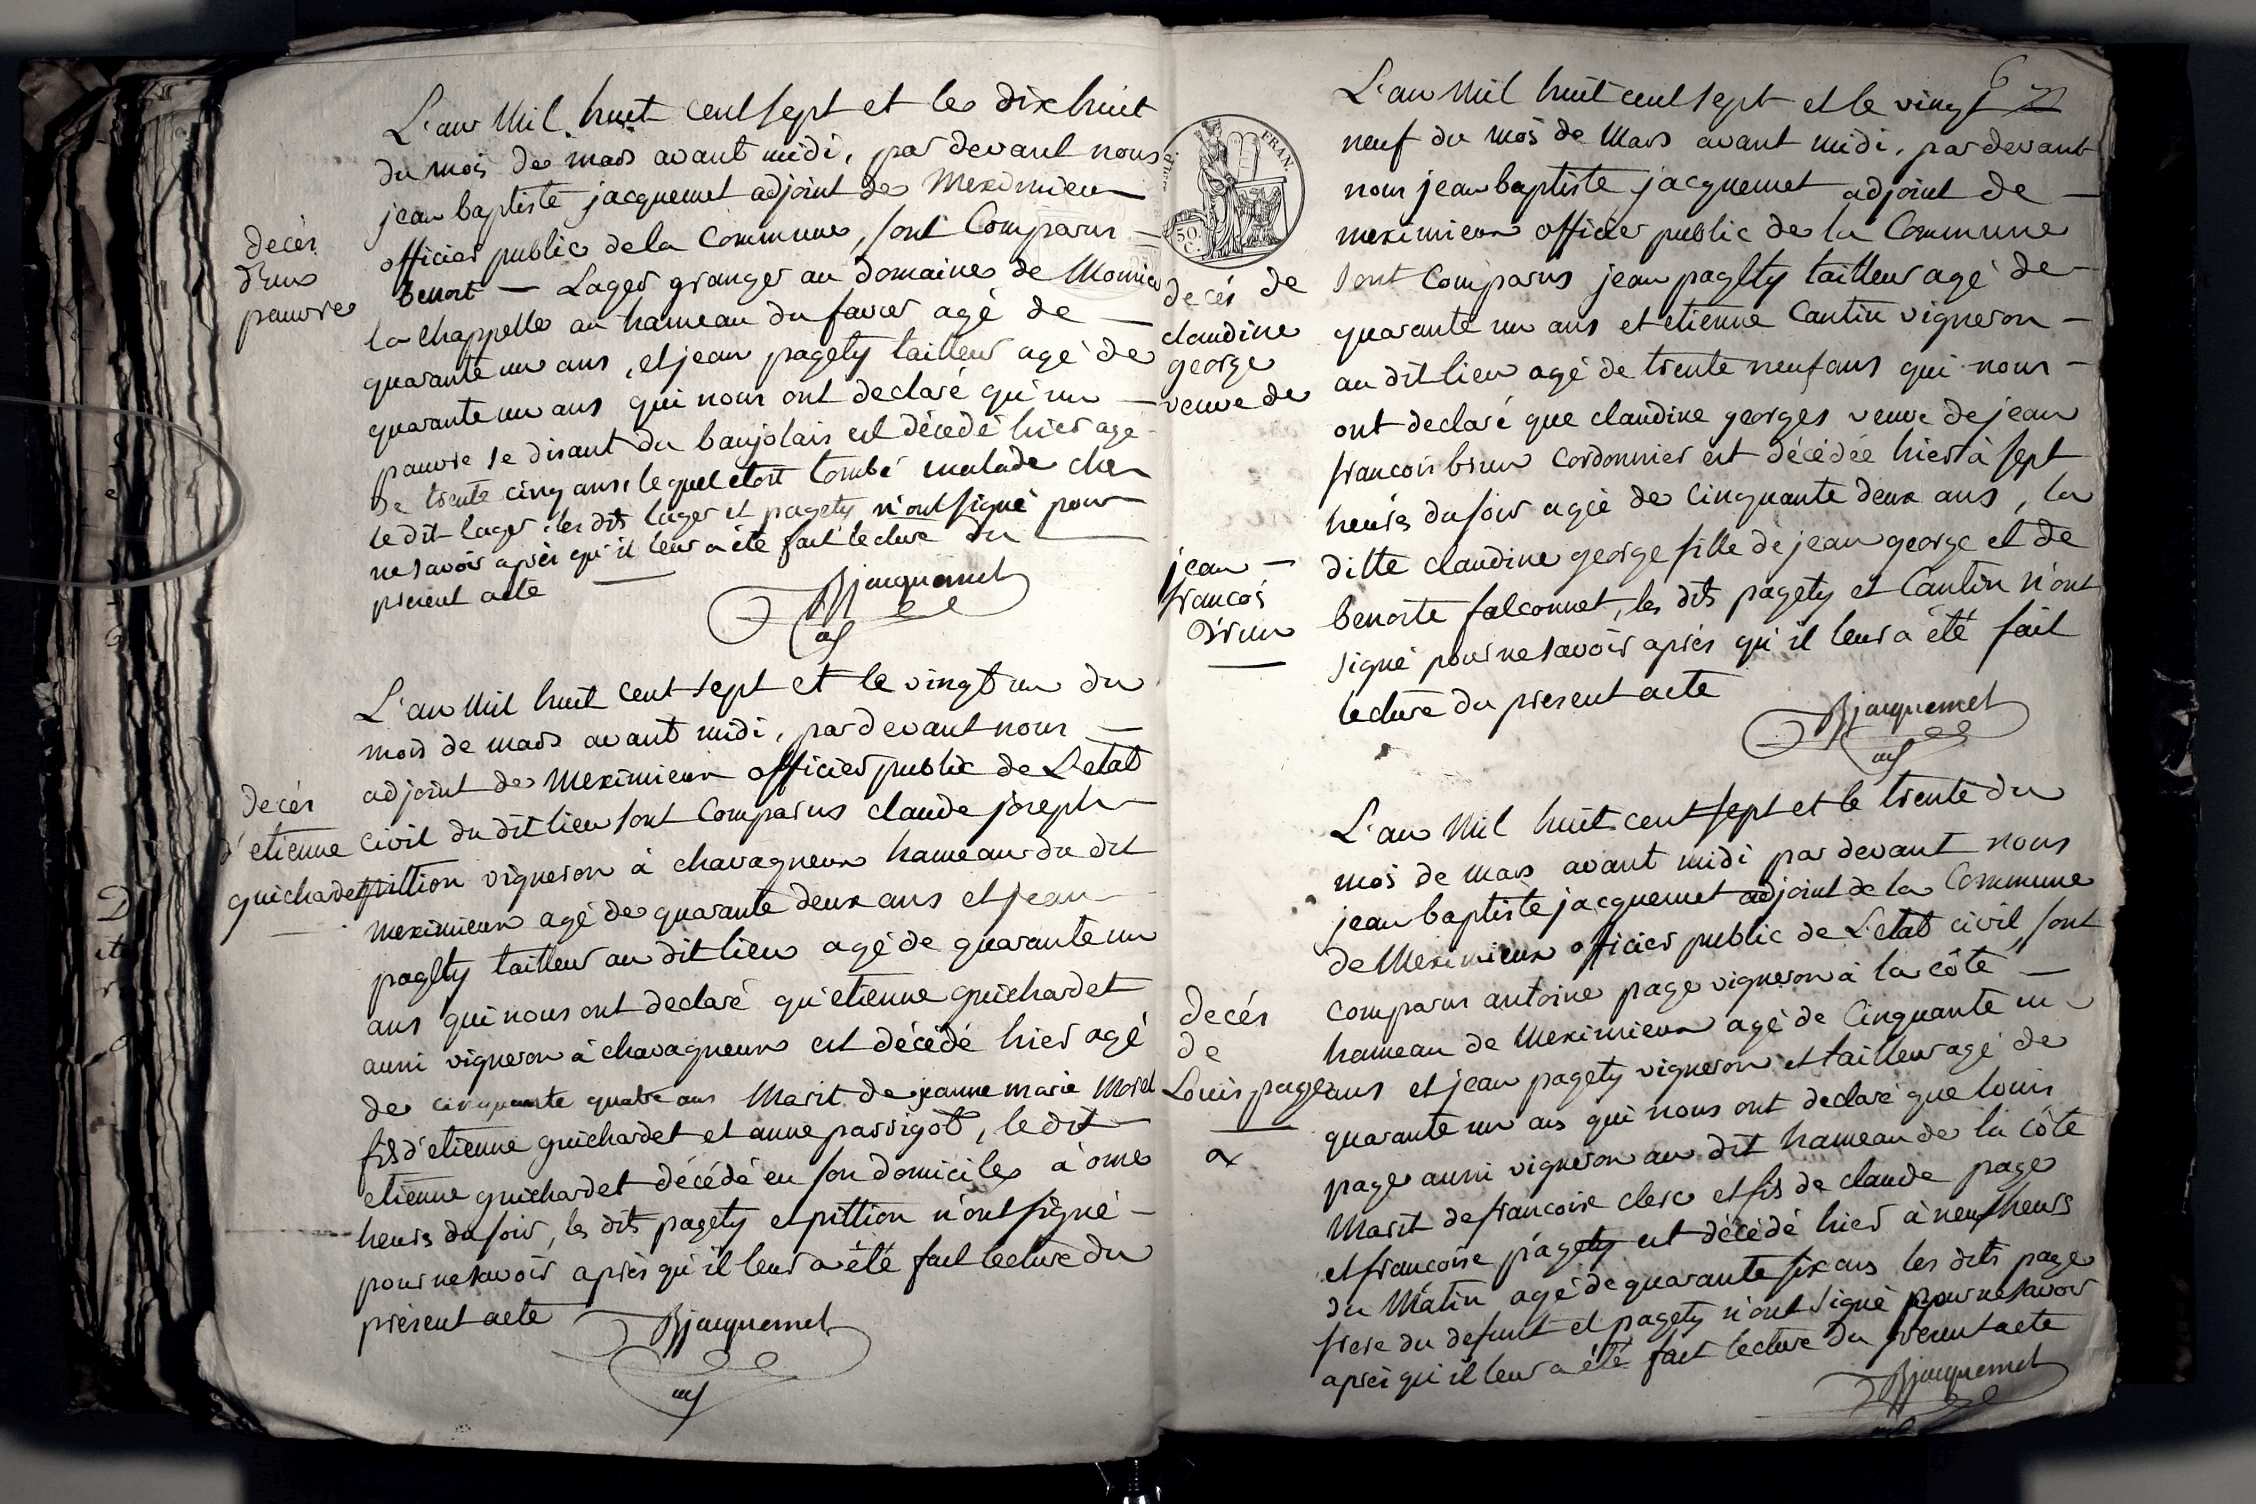 decés
d'un
pauvre
L'an Mil huit cent sept et le dix huit
du mois de mars avant midi, par devant nous
jean baptiste jacquemet adjoint de Meximieux
officier public de la Commune, sont Comparus
benoit — Lager granger au domaine de
la Chappelle au hameau du favier agé de —
quarante un ans, et jean pagety tailleur agé de
quarante un ans qui nous ont declaré qu'un —
pauvre se disant du baujolais est décédé hier agé
de trente cinq ans, lequel étoit tombé malade chez
le dit lager. les dits lager et pagety n'ont signé pour
ne savoir aprés qu'il leur a été fait lecture du
present acte
Bjacquemet
adj
decés
d'etienne
guichardet
L'an Mil huit cent sept et le vingt un du
mois de mars avant midi, par devant nous —
adjoint de Meximieux officier public de L'etat
civil du dit lieu sont Comparus claude joseph
pittion vigneron à chavagneux hameau du dit
meximieux agé de quarante deux ans et jean
pagety tailleur au dit lieu agé de quarante un
ans qui nous ont declaré qu'etienne guichardet
aussi vigneron à chavagneux est décédé hier agé
de cinquante quatre ans Marit de jeanne marie Morel
fils d'etienne guichardet et anne passigot, le dit
etienne guichardet décédé en son domicile à onze
heures du soir, les dits pagety et pittion n'ont signé —
pour ne savoir aprés qu'il leur a été fait lecture du
present acte
Bjacquemet
adj
6
FRAN.
50
C.
decés de
claudine
george
veuve de
jean —
francois
brun
L'an Mil huit cent sept et le vingt
neuf du mois de Mars avant midi, par devant
nous jean baptiste jacquemet adjoint de —
meximieux officier public de la Commune
sont Comparus jean pagety tailleur agé de
quarante un ans et etienne Cantin vigneron —
au dit lieu agé de trente neuf ans qui nous —
ont declaré que claudine georges veuve de jean
francois brun Cordonnier est décédée hier à sept
heures du soir agée de Cinquante deux ans, la
ditte claudine george fille de jean george et de
benoite falconnet, les dits pagety et Cantin n'ont
signé pour ne savoir aprés qu'il leur a été fait
lecture du present acte
Bjacquemet
adj
decés
de
Louis page
L'an Mil huit cent sept et le trente du
mois de mars avant midi par devant nous
jean baptiste jacquemet adjoint de la Commune
de Meximieux officier public de L'etat civil sont
comparus antoine page vigneron à la côte —
hameau de Meximieux agé de Cinquante un
ans et jean pagety vigneron et tailleur agé de
quarante un ans qui nous ont declaré que louis
page aussi vigneron au dit hameau de la côte
Marit de francoise clerc et fils de claude page
et francoise pagety est décédé hier à neuf heures
du Matin agé de quarante six ans les dits page
frere du defunt et pagety n'ont signé pour ne savoir
aprés qu'il leur a été fait lecture du present acte
Bjacquemet